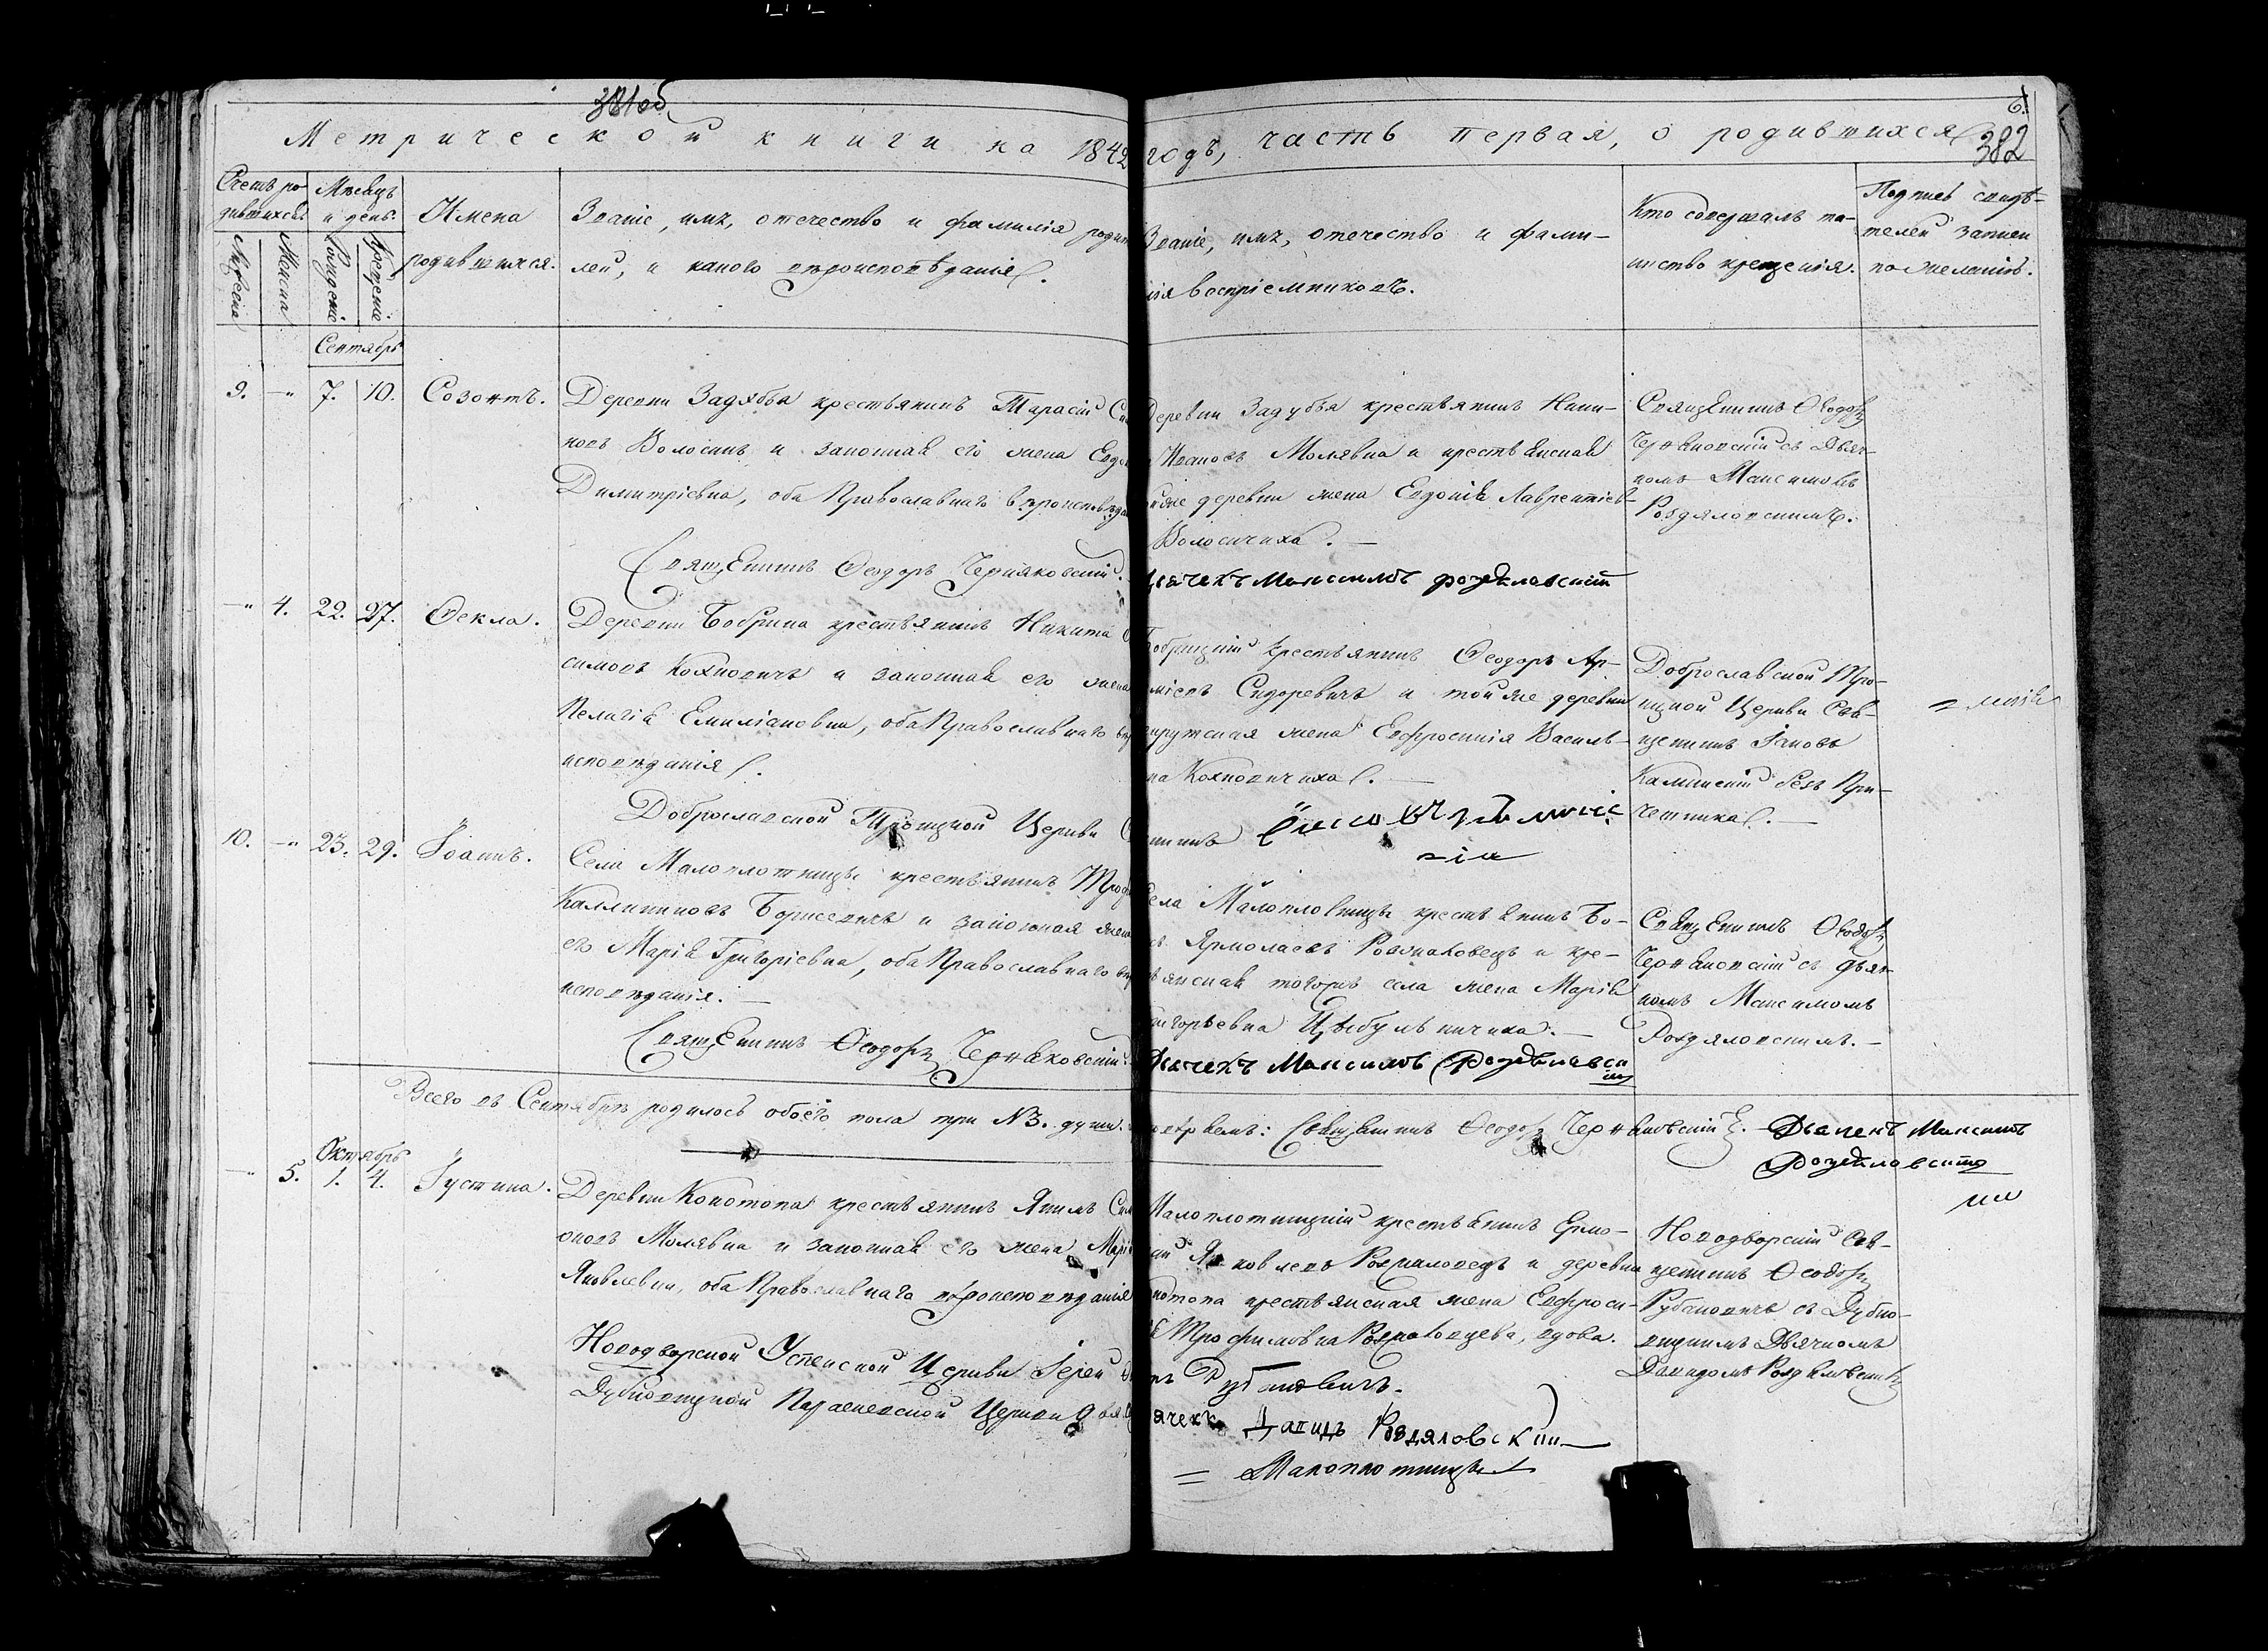 381об
6.
382
Метрической книги на 1842
годъ, часть первая, о родившихся
Счетъ ро-
дившихся
Мужеска
Женска
Мѣсяцъ
и день.
Рожденіе
Крещеніе
Имена
родившихся.
Званіе, имя, отечество и фамилія родит
лей, и какого вѣроисповѣданія.
Званіе, имя, отечество и фами-
лія воспріемниковъ.
Кто совершалъ та-
инство крещенія.
Подпись свидѣ-
телей записи
по желанію.
Сентябрь
9. —" 7. 10. Созонтъ.
Деревни Задубья крестьянинъ Тарасій Си
новъ Волосинъ и законная его жена Евдо
Димитріевна, оба Православнаго вѣроисповѣдан
Священникъ Ѳеодоръ Черняковскій.
Деревни Задубья крестьянинъ Ники-
Ивановъ Молявка и крестьянская
жде деревни жена Евдокія Лаврентіев-
Волосичиха. —
Дьячекъ Максимъ Роздяловскій
Священникъ Ѳеодоръ
Черняковскій съ Дьяч-
комъ Максимомъ
Роздяловскимъ.
—" 4. 22. 27. Ѳекла.
Деревни Бобрика крестьянинъ Никита
симовъ Кохновичъ и законная его жена
Пелагія Емиліановна, оба Православнаго вѣр
исповѣданія.
Доброславской Троицкой Церкви
Бобрицкій крестьянинъ Ѳеодоръ Ар-
міевъ Сидоревичъ и той же деревни
жена Евфросинія Василь-
на Кохновичиха. —
Доброславской Тро-
ицкой Церкви Свя-
щенникъ Іаковъ
Каминскій безъ При-
четника. —
10. —" 23. 29. Іоаннъ.
Села Малоплотницы крестьянинъ Троф
Каллиниковъ Борисевичъ и законная жена
его Марія Григоріевна, оба Православнаго вѣр
исповѣданія. —
Священникъ Ѳеодоръ Черняковскій.
Села Малоплотницы крестьянинъ Бо-
Ярмолаевъ Рохмаковецъ и кре-
стьянская тогожъ села жена Марія
Григорьевна Цыбульничиха. —
Дьячекъ Максимъ Роздяловскій
Священникъ Ѳеодоръ
Черняковскій съ дьяч-
комъ Максимомъ
Роздяловскимъ. —
Всего въ Сентябрѣ родилось обоего пола три №3. души.
Священникъ Ѳеодоръ Черняковскій. Дьячекъ Максимъ
Роздяловскій
Октябрь
—" 5. 1. 4. Іустина.
Деревни Конотопа крестьянинъ Якимъ Сим
оновъ Молявка и законная его жена Марі
Яковлевна, оба Православнаго вѣроисповѣданія
Новодворской Успенской Церкви Іерей
Дубновицкой Параскевской Церкви дья
Малоплотницкій крестьянинъ Ермо-
лай Яковлевъ Рохмаковецъ и деревни
Конотопа крестьянская жена Евфроси-
Трофимовна Рохмаковцева, вдова.
Рубановичъ.
дьячекъ Давидъ Роздяловскій
= Малоплотницы
Новодворскій Свя-
щенникъ Ѳеодоръ
Рубановичъ съ Дубно-
вицкимъ Дьячкомъ
Давидомъ Роздяловскимъ